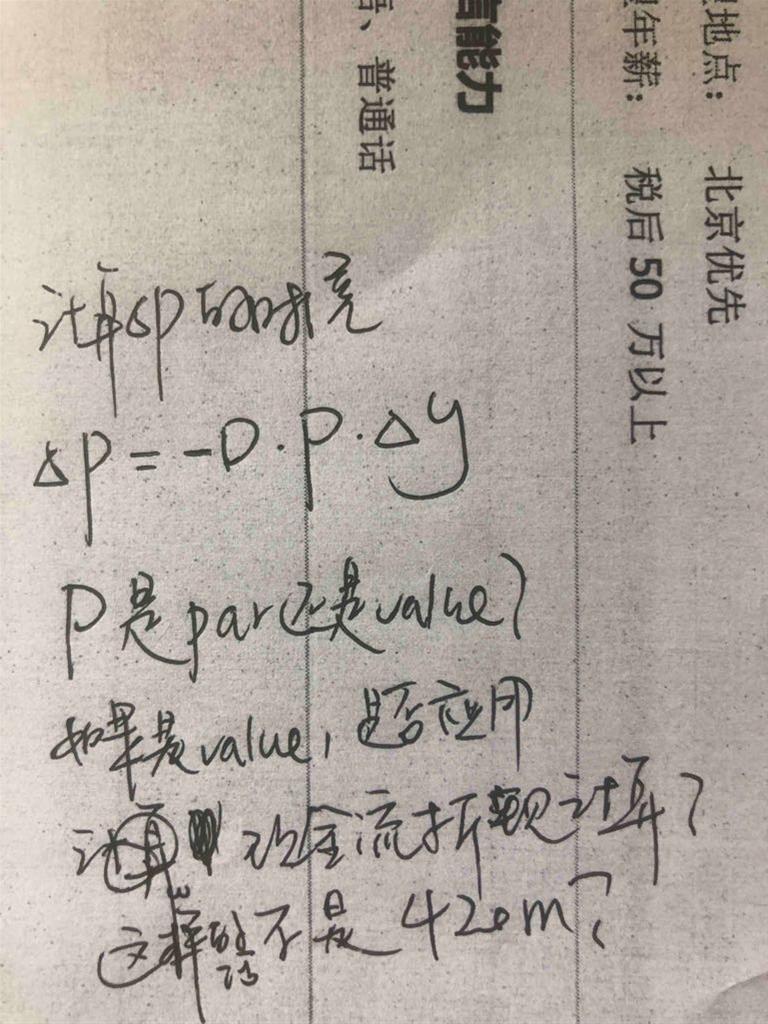 计算ΔP的时候
ΔP = -D · P · Δy
P是par还是value?
如果是value, 是否应用
计算 现金流折现计算?
这样的话不是420m?
言能力
语、普通话
望地点: 北京优先
望年薪: 税后 50 万以上